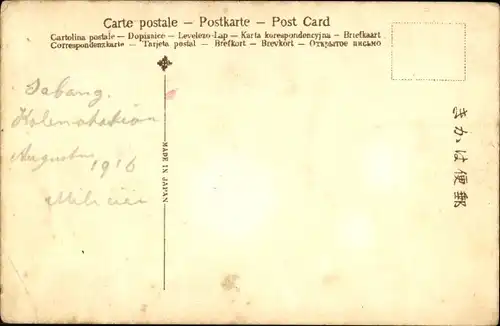 Carte postale – Postkarte – Post Card
Cartolina postale – Dopisnice – Levelezo-Lap – Karta korespondencyjna – Briefkaart
Correspondenzkarte – Tarjeta postal – Brefkort – Brevkort – Открытое письмо
Sabang.
Kolenstation
Augustus
1916
MADE IN JAPAN
きかは便郵